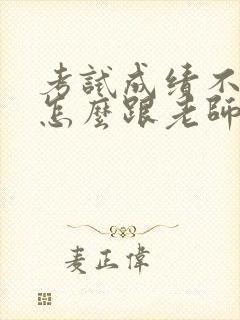 考試成績不
怎麼跟老師
麦正偉